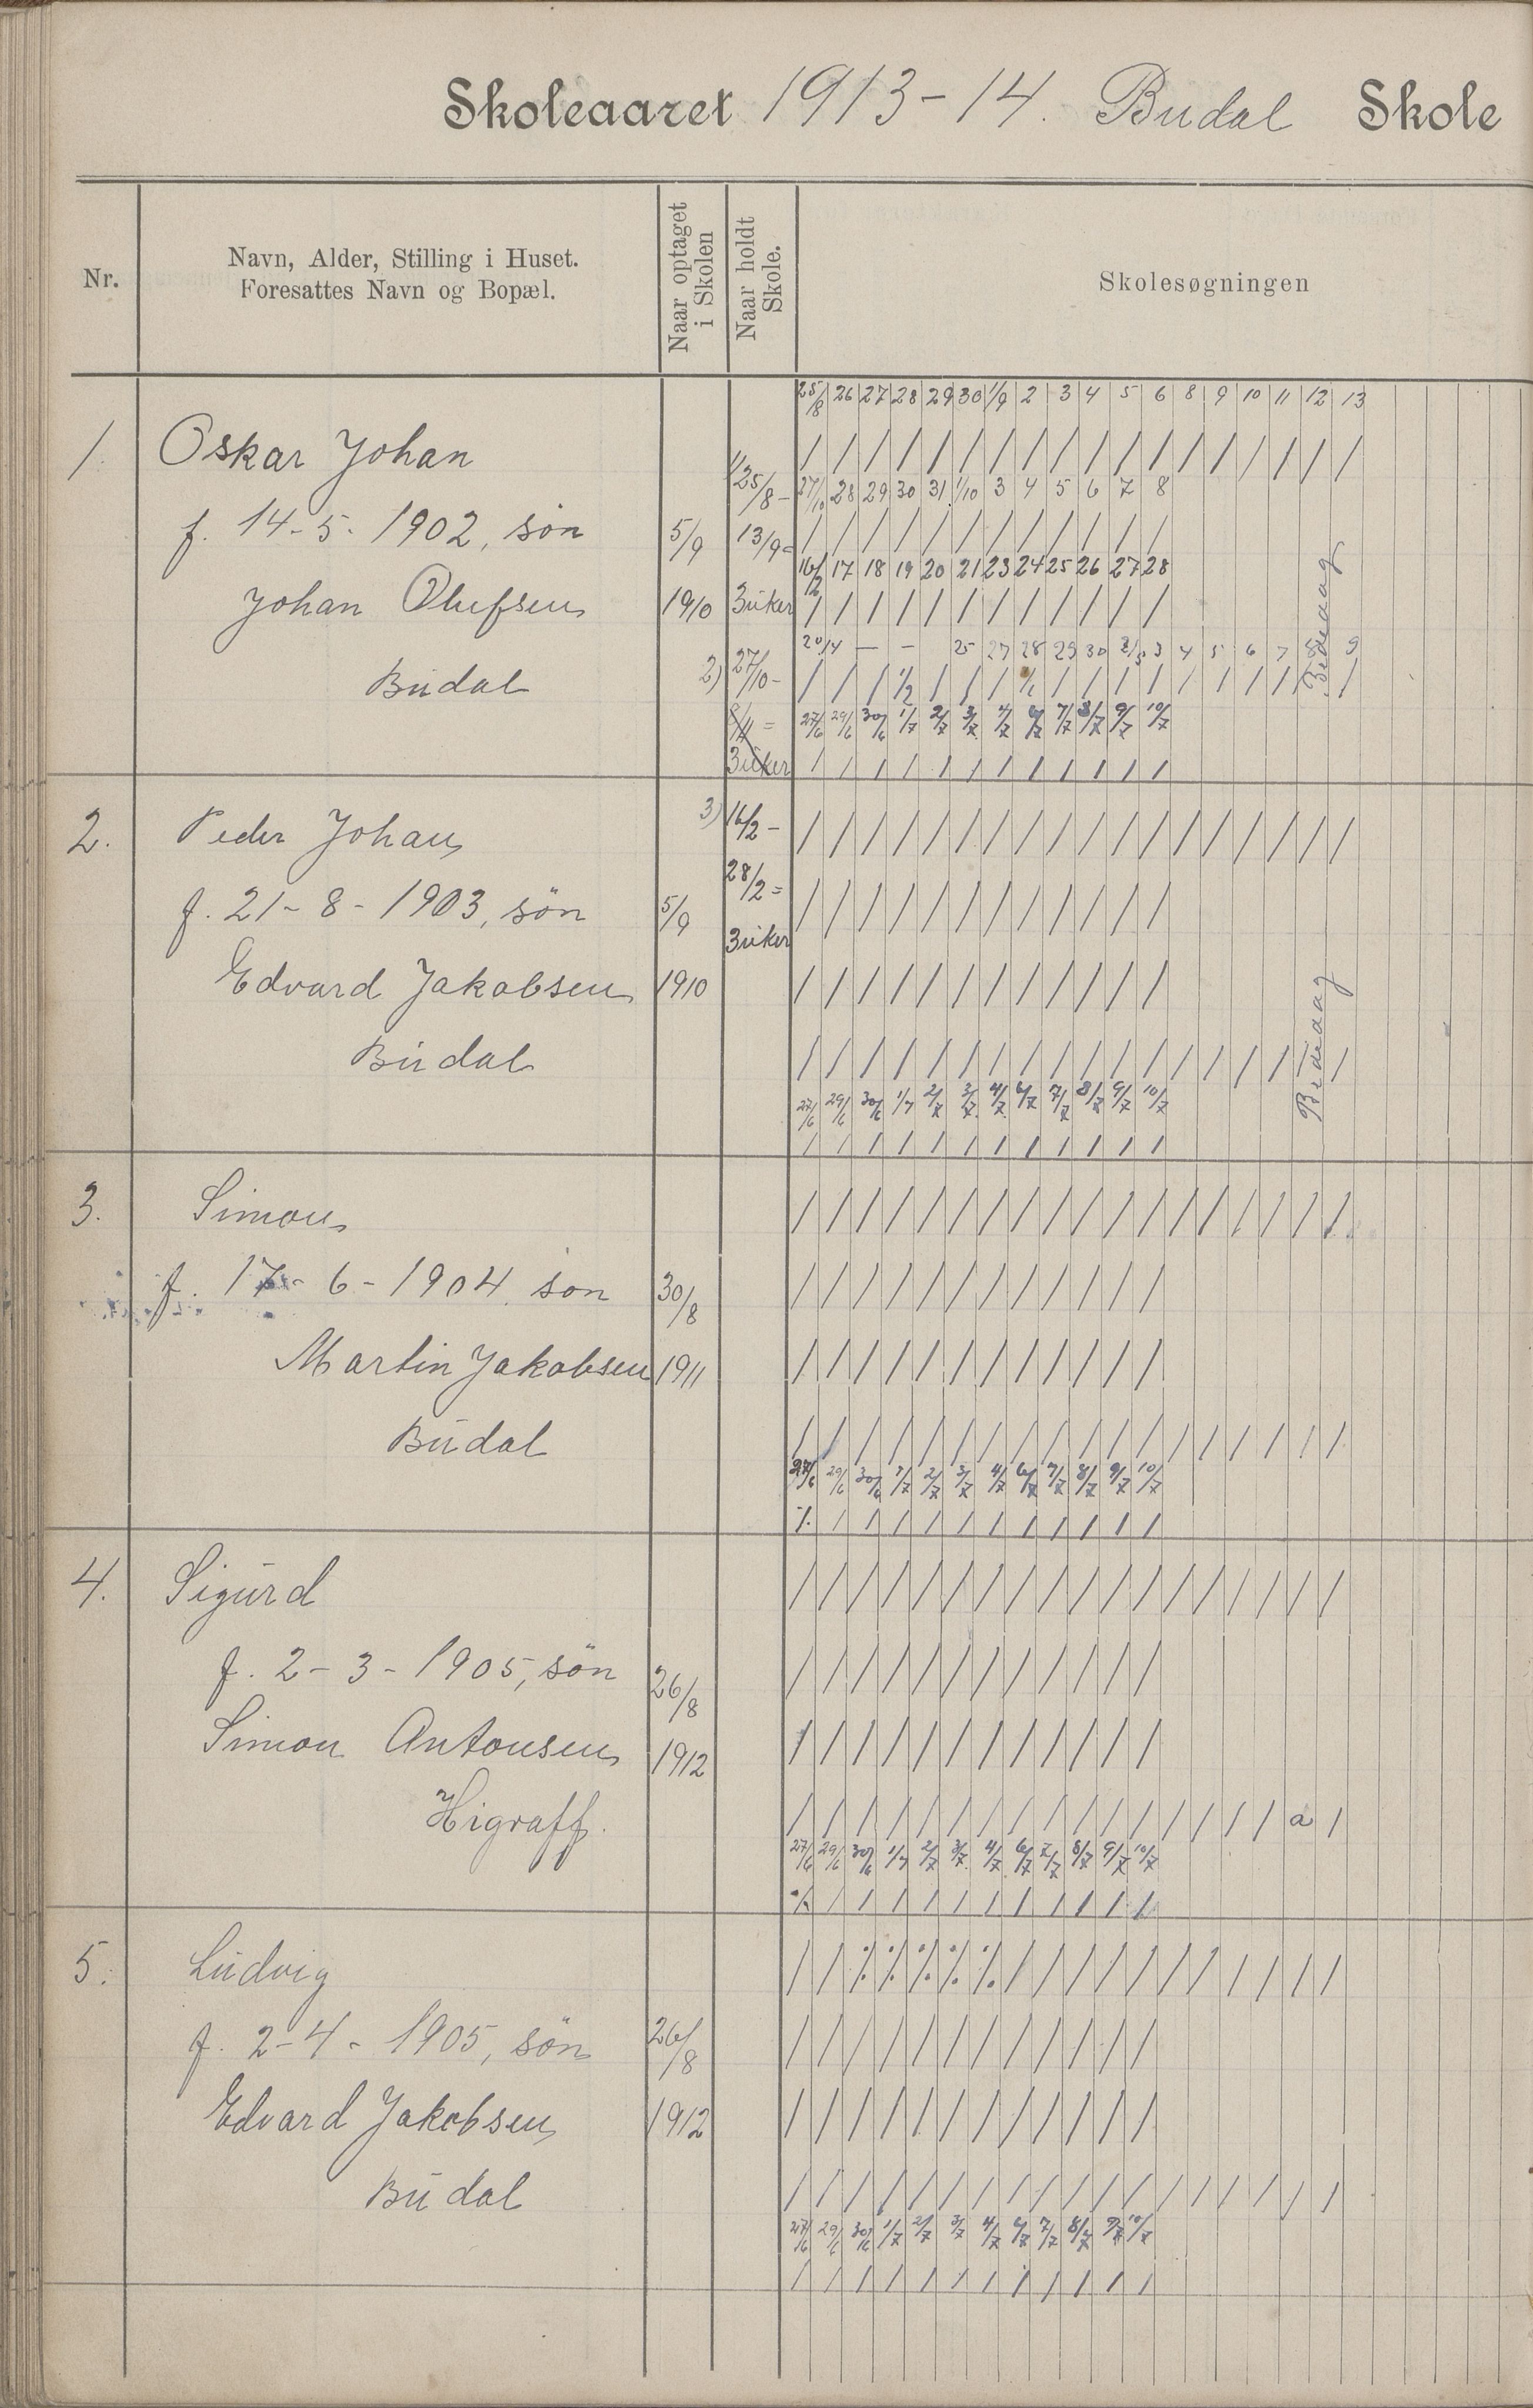 Skoleaaret 1913-14. Budal Skole
Nr.
Navn, Alder, Stilling i Huset.
Foresattes Navn og Bopæl.
Naar optaget
i Skolen
Naar holdt
Skole.
Skolesøgningen
25/8 26 27 28 29 30 1/9 2 3 4 5 6 8 9 10 11 12 13
1. Oskar Johan / / / / / / / / / / / / / / / / / /
1/ 25/8- 27/10 28 29 30 31 1/10 3 4 5 6 7 8
f. 14-5-1902, søn 5/9 13/9= / / / / / / / / / / / /
16/2 17 18 19 20 21 23 24 25 26 27 28
Johan Olufsen 1910 3 uker / / / / / / / / / / / /
20/4 — – 25 27 28 29 30 2/5 3 4 5 6 7 8 9
Budal 2) 27/10- / / / 1/2 / / / / / / / / / / / / /
Bededag
8/11 = 27/6 29/6 30/6 1/7 2/7 3/7 4/7 6/7 7/7 8/7 9/7 10/7
3 uker / / / / / / / / / / / /
2. Peder Johan 3) 16/2- / / / / / / / / / / / / / / / / / /
28/2=
f. 21-8-1903, søn 5/9 / / / / / / / / / / / /
3 uker
Edvard Jakobsen 1910 / / / / / / / / / / / /
Budal / / / / / / / / / / / / / / / / / /
Bededag
27/6 29/6 30/6 1/7 2/7 3/7 4/7 6/7 7/7 8/7 9/7 10/7
/ / / / / / / / / / / /
3. Simon / / / / / / / / / / / / / / / / / /
f. 17-6-1904. søn 30/8 / / / / / / / / / / / /
Martin Jakobsen 1911 / / / / / / / / / / / /
Budal / / / / / / / / / / / / / / / / / /
27/6 29/6 30/6 1/7 2/7 3/7 4/7 6/7 7/7 8/7 9/7 10/7
% / / / / / / / / / / /
4. Sigurd / / / / / / / / / / / / / / / / / /
f. 2-3-1905, søn 26/8 / / / / / / / / / / / /
Simon Antonsen 1912 / / / / / / / / / / / /
Higraff. / / / / / / / / / / / / / / / / a /
27/6 29/6 30/6 1/7 2/7 3/7 4/7 6/7 7/7 8/7 9/7 10/7
% / / / / / / / / / / /
5. Ludvig / / % % % % % / / / / / / / / / / /
f. 2-4-1905, søn 26/8 / / / / / / / / / / / /
Edvard Jakobsen 1912 / / / / / / / / / / / /
Budal / / / / / / / / / / / / / / / / / /
27/6 29/6 30/6 1/7 2/7 3/7 4/7 6/7 7/7 8/7 9/7 10/7
/ / / / / / / / / / / /